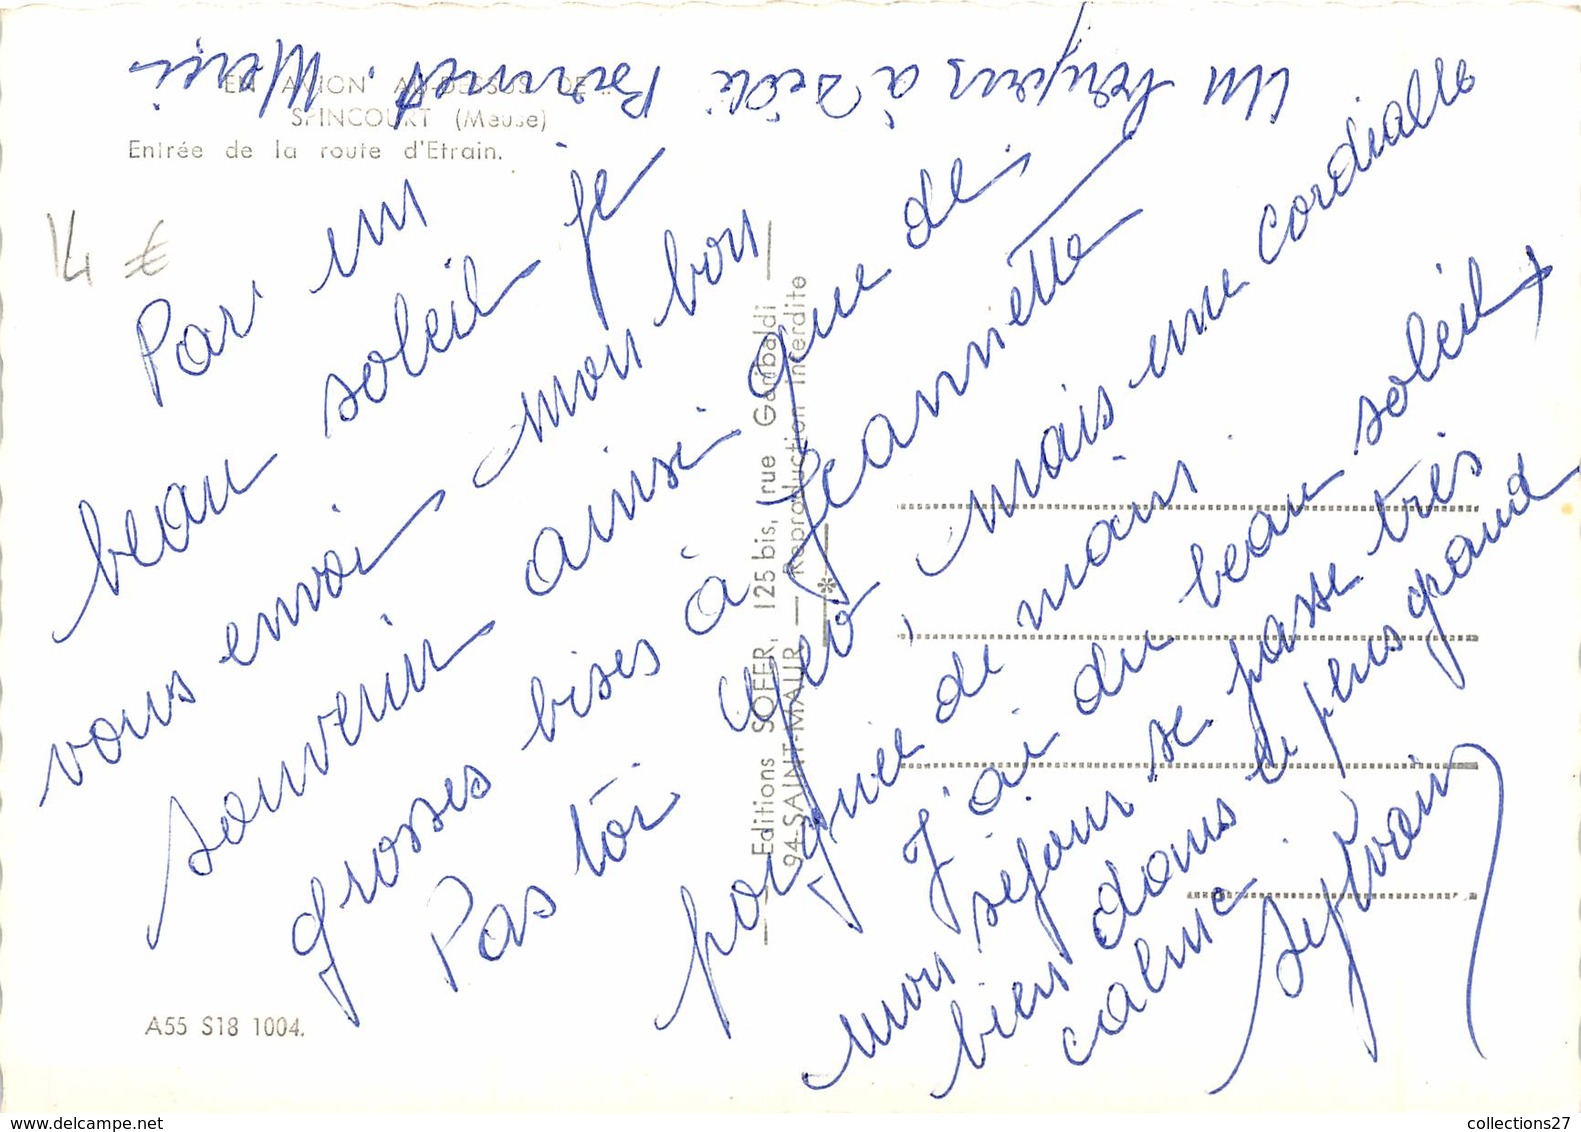 EN AVION AU-DESSUS DE ...
SPINCOURT (Meuse)
Entrée de la route d'Etrain.
14 €
Par un
beau soleil je
vous envoi mon bon
souvenir ainsi que de
grosses bises à Jeannette
Pas toi Géo, mais une cordialle
poignée de mains.
J'ai du beau soleil +
mon séjour se passe très
bien dans le plus grand
calme.
Sylvain
Un toujours à Dédé Bonnet. Merci
Editions SOFER, 125 bis, rue Garibaldi
94-SAINT-MAUR — Reproduction interdite
A55 S18 1004.
www.delcampe.net
collections27